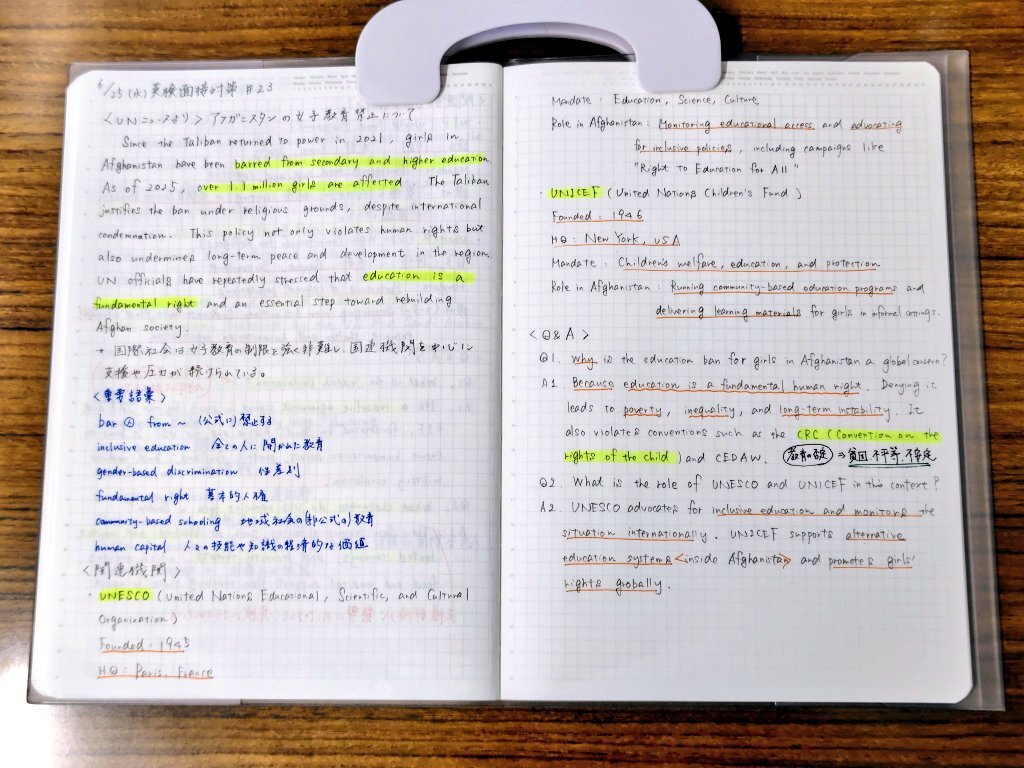 6/25 (水) 英検面接対策 #23
<UNニュースより> アフガニスタンの女子教育禁止について
Since the Taliban returned to power in 2021, girls in
Afghanistan have been barred from secondary and higher education.
As of 2025, over 1.1 million girls are affected. The Taliban
justifies the ban under religious grounds, despite international
condemnation. This policy not only violates human rights but
also undermines long-term peace and development in the region.
UN officials have repeatedly stressed that education is a
fundamental right and an essential step toward rebuilding
Afghan society.
→ 国際社会は女子教育の制限を強く非難し、国連機関を中心に
支援や圧力が続けられている。
<重要語彙>
bar Ⓐ from ~ (公式に)禁止する
inclusive education 全ての人に開かれた教育
gender-based discrimination 性差別
fundamental right 基本的人権
community-based schooling 地域社会の(非公式の)教育
human capital 人々の技能や知識の経済的な価値
<関連機関>
・UNESCO (United Nations Educational, Scientific, and Cultural
Organization)
Founded: 1945
HQ: Paris, France
Mandate: Education, Science, Culture
Role in Afghanistan: Monitoring educational access and advocating
for inclusive policies, including campaigns like
"Right to Education for All"
・UNICEF (United Nations Children's Fund)
Founded: 1946
HQ: New York, USA
Mandate: Children's welfare, education, and protection
Role in Afghanistan: Running community-based education programs and
delivering learning materials for girls in informal settings.
<Q&A>
Q1. Why is the education ban for girls in Afghanistan a global concern?
A1. Because education is a fundamental human right. Denying it
leads to poverty, inequality, and long-term instability. It
also violates conventions such as the CRC (Convention on the
rights of the child) and CEDAW. ⇒ 貧困 不平等 不安定
Q2. What is the role of UNESCO and UNICEF in this context?
A2. UNESCO advocates for inclusive education and monitors the
situation internationally. UNICEF supports alternative
education systems <inside Afghanistan> and promotes girls'
rights globally.